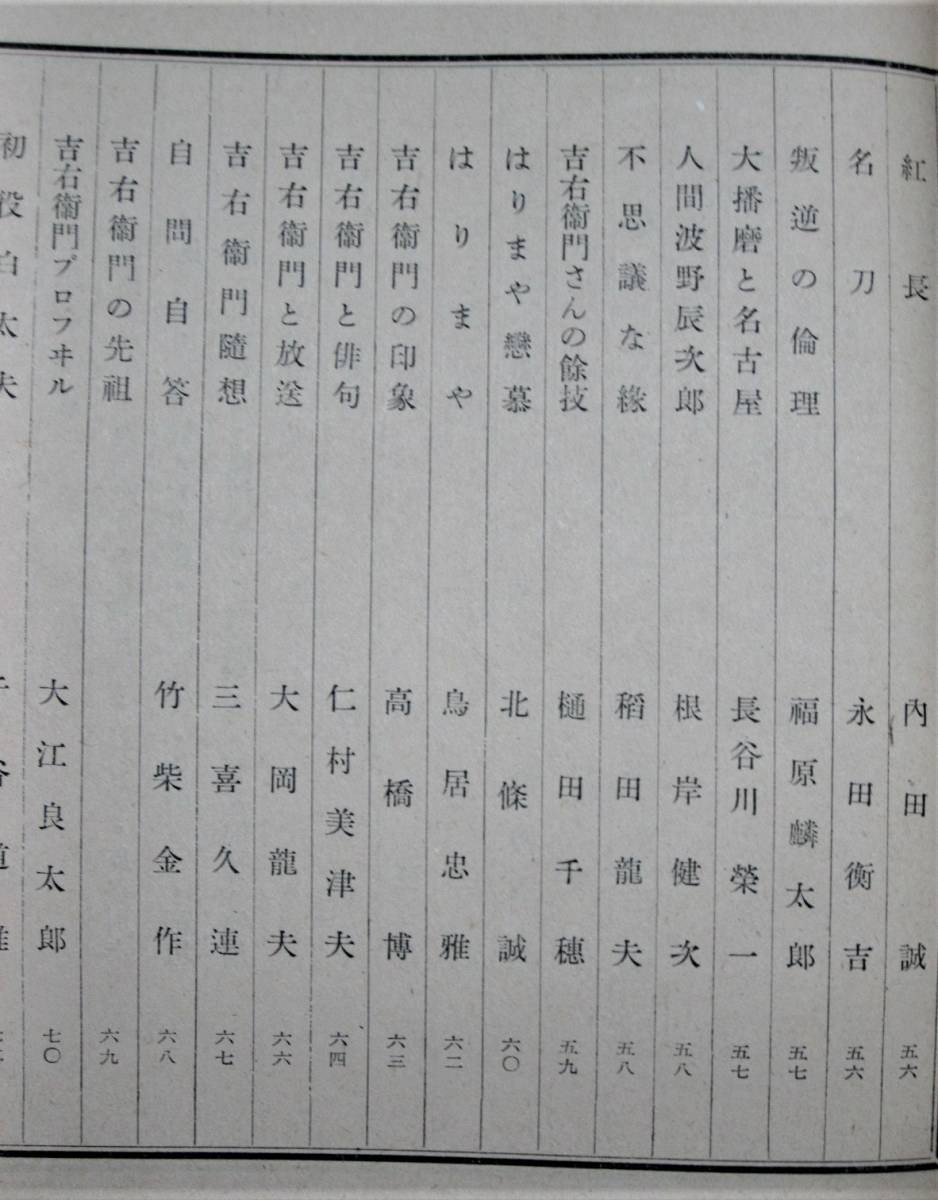 紅長 內田誠 五六
名刀 永田衡吉 五六
叛逆の倫理 福原麟太郎 五七
大播磨と名古屋 長谷川榮一 五七
人間波野辰次郎 根岸健次 五八
不思議な緣 稻田龍夫 五八
吉右衞門さんの餘技 樋田千穗 五九
はりまや戀慕 北條誠 六〇
はりまや 鳥居忠雅 六二
吉右衞門の印象 高橋博 六三
吉右衞門と俳句 仁村美津夫 六四
吉右衞門と放送 大岡龍夫 六六
吉右衞門隨想 三喜久連 六七
自問自答 竹柴金作 六八
吉右衞門の先祖 六九
吉右衞門プロフヰル 大江良太郎 七〇
初役白太夫